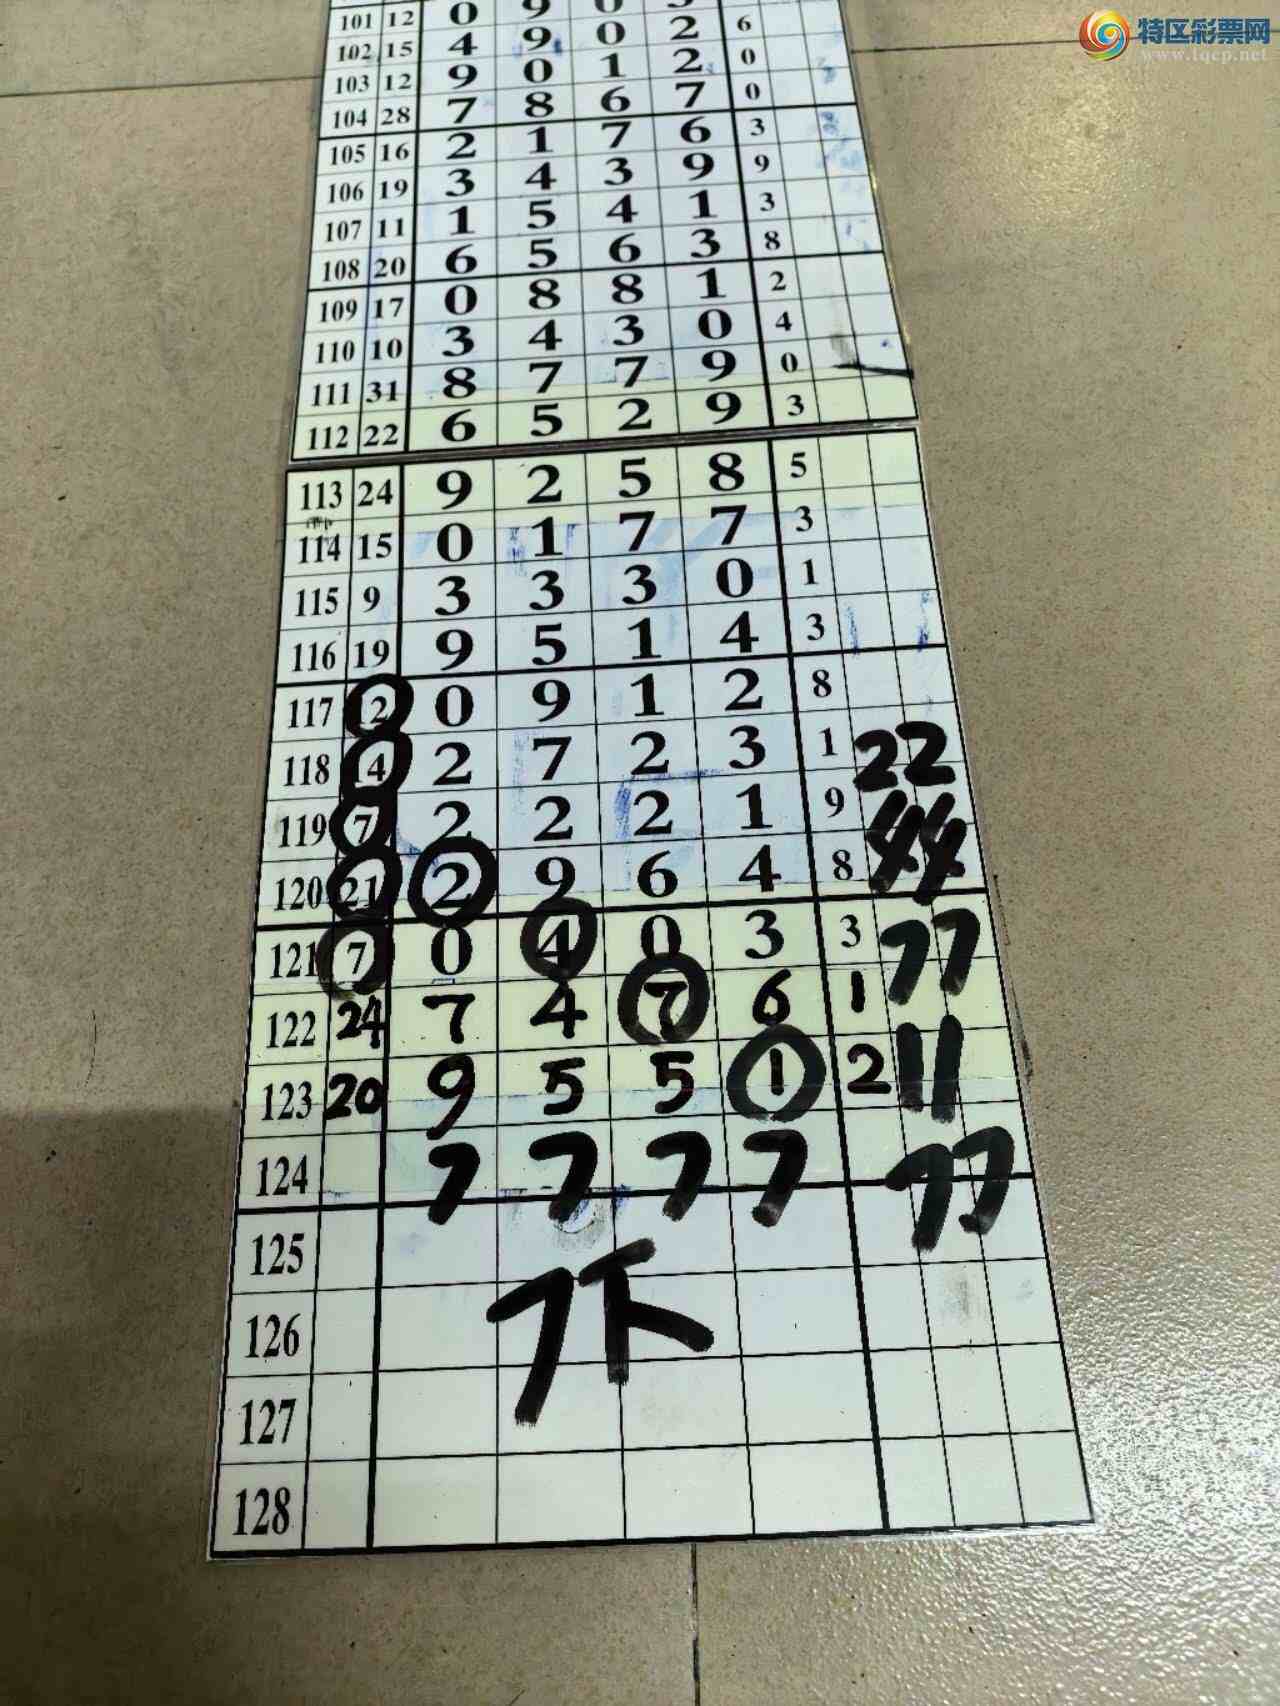 特区彩票网
www.tqcp.net
101 12 0 9 0 3
102 15 4 9 0 2 6
103 12 9 0 1 2 0
104 28 7 8 6 7 0
105 16 2 1 7 6 3
106 19 3 4 3 9 9
107 11 1 5 4 1 3
108 20 6 5 6 3 8
109 17 0 8 8 1 2
110 10 3 4 3 0 4
111 31 8 7 7 9 0
112 22 6 5 2 9 3
113 24 9 2 5 8 5
114 15 0 1 7 7 3
115 9 3 3 3 0 1
116 19 9 5 1 4 3
117 12 0 9 1 2 8
118 14 2 7 2 3 1 22
119 7 2 2 2 1 9 44
120 21 2 9 6 4 8
121 7 0 4 0 3 3 77
122 24 7 4 7 6 1
123 20 9 5 5 1 2 11
124 7 7 7 7 77
125
126 7下
127
128